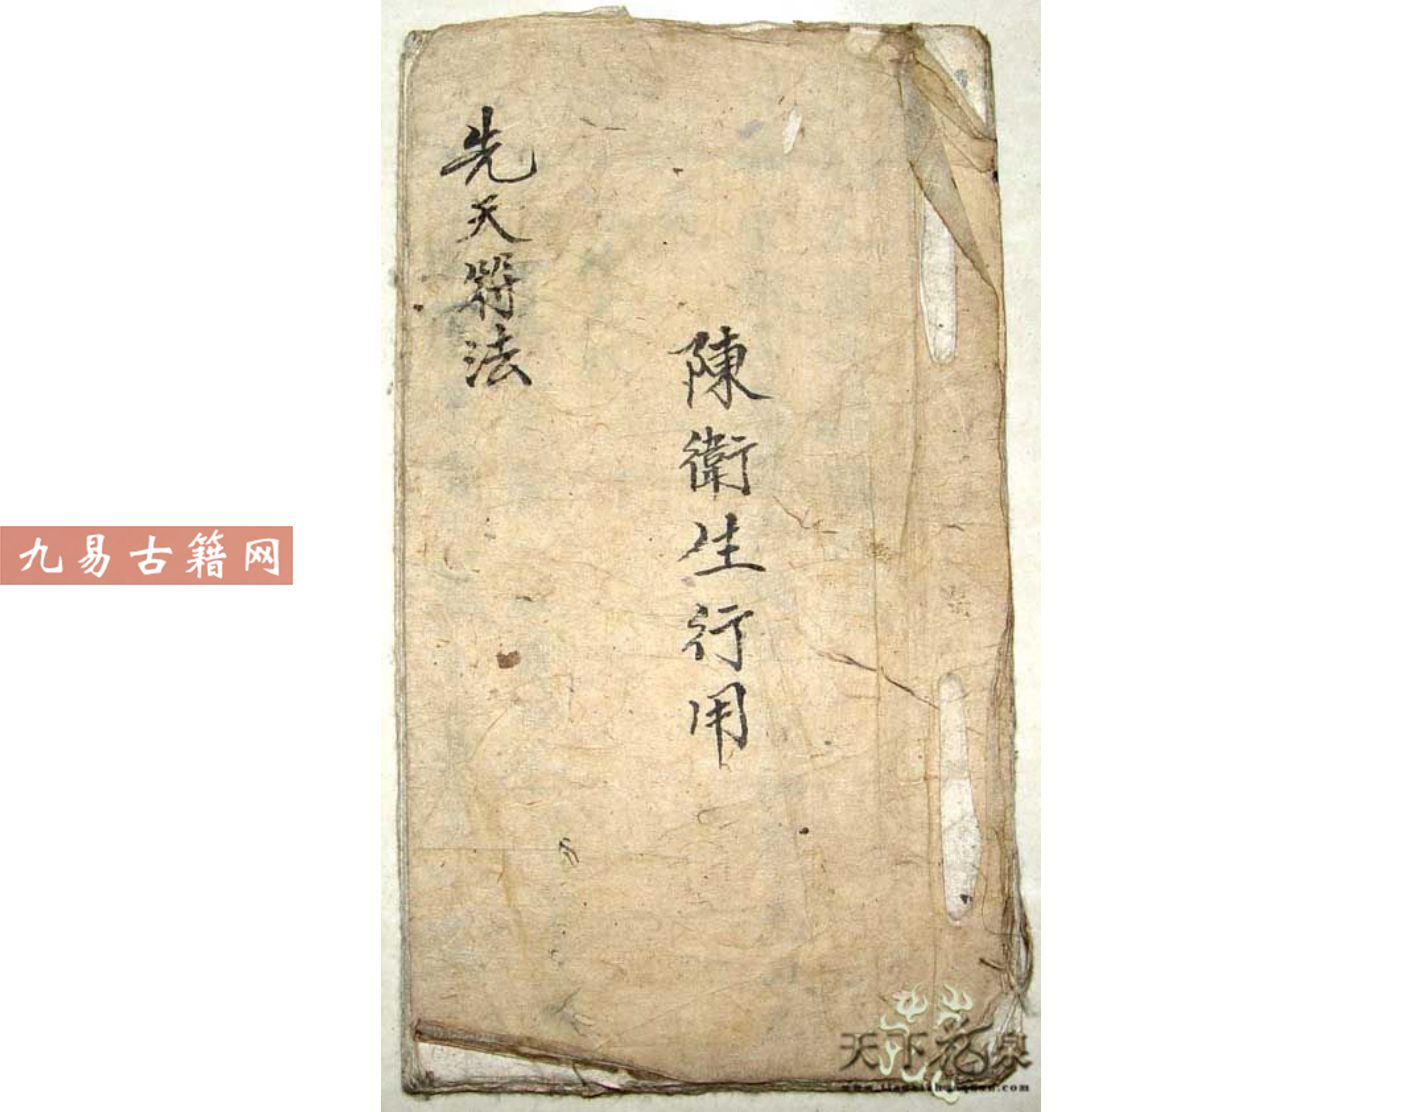 先天符法
陳衛生行用
九易古籍网
天下花泉